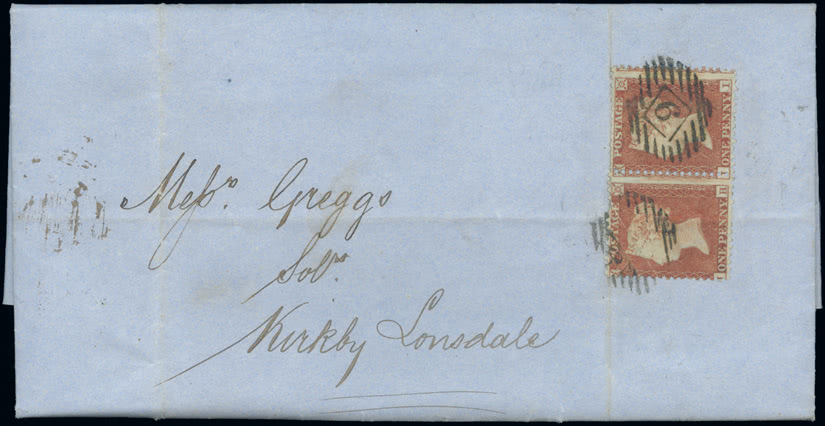 Messrs. Greggs
Solrs.
Kirkby Lonsdale
POSTAGE
ONE PENNY
6
ONE PENNY